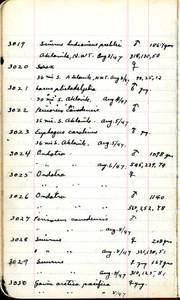 3019 Sciurus hudsonicus preblei ♂ 167 gms
Aklavik, N.W.T. Aug 2/47 318,130,50
3020 Same ♀
36 mi S. Aklavik, N.W.T. Aug 2/47 90,25,12
3021 Larus philadelphia ♂ yg.
30 mi S. Aklavik, Aug 4/47
3022 Perisoreus canadensis ♂
36 mi S. Aklavik, Aug 5/47
3023 Euphagus carolinus ♀ yg.
36 mi S. Aklavik, Aug 5/47
3024 Ondatra ♂ 1098 gms
" " Aug 6/47 505,239,78
3025 Ondatra ♀
" "
3026 Ondatra ♂ 1140
" " 520,252,78
3027 Perisoreus canadensis ♂
" " Aug 8/47
3028 Sciurus ♂ 208 gms
" " Aug 8/47 321,130,51
3029 Sciurus ♀ yg. 168 gms
" " Aug 8/47 310,125,51
3030 Gavia arctica pacifica ♀ yg.